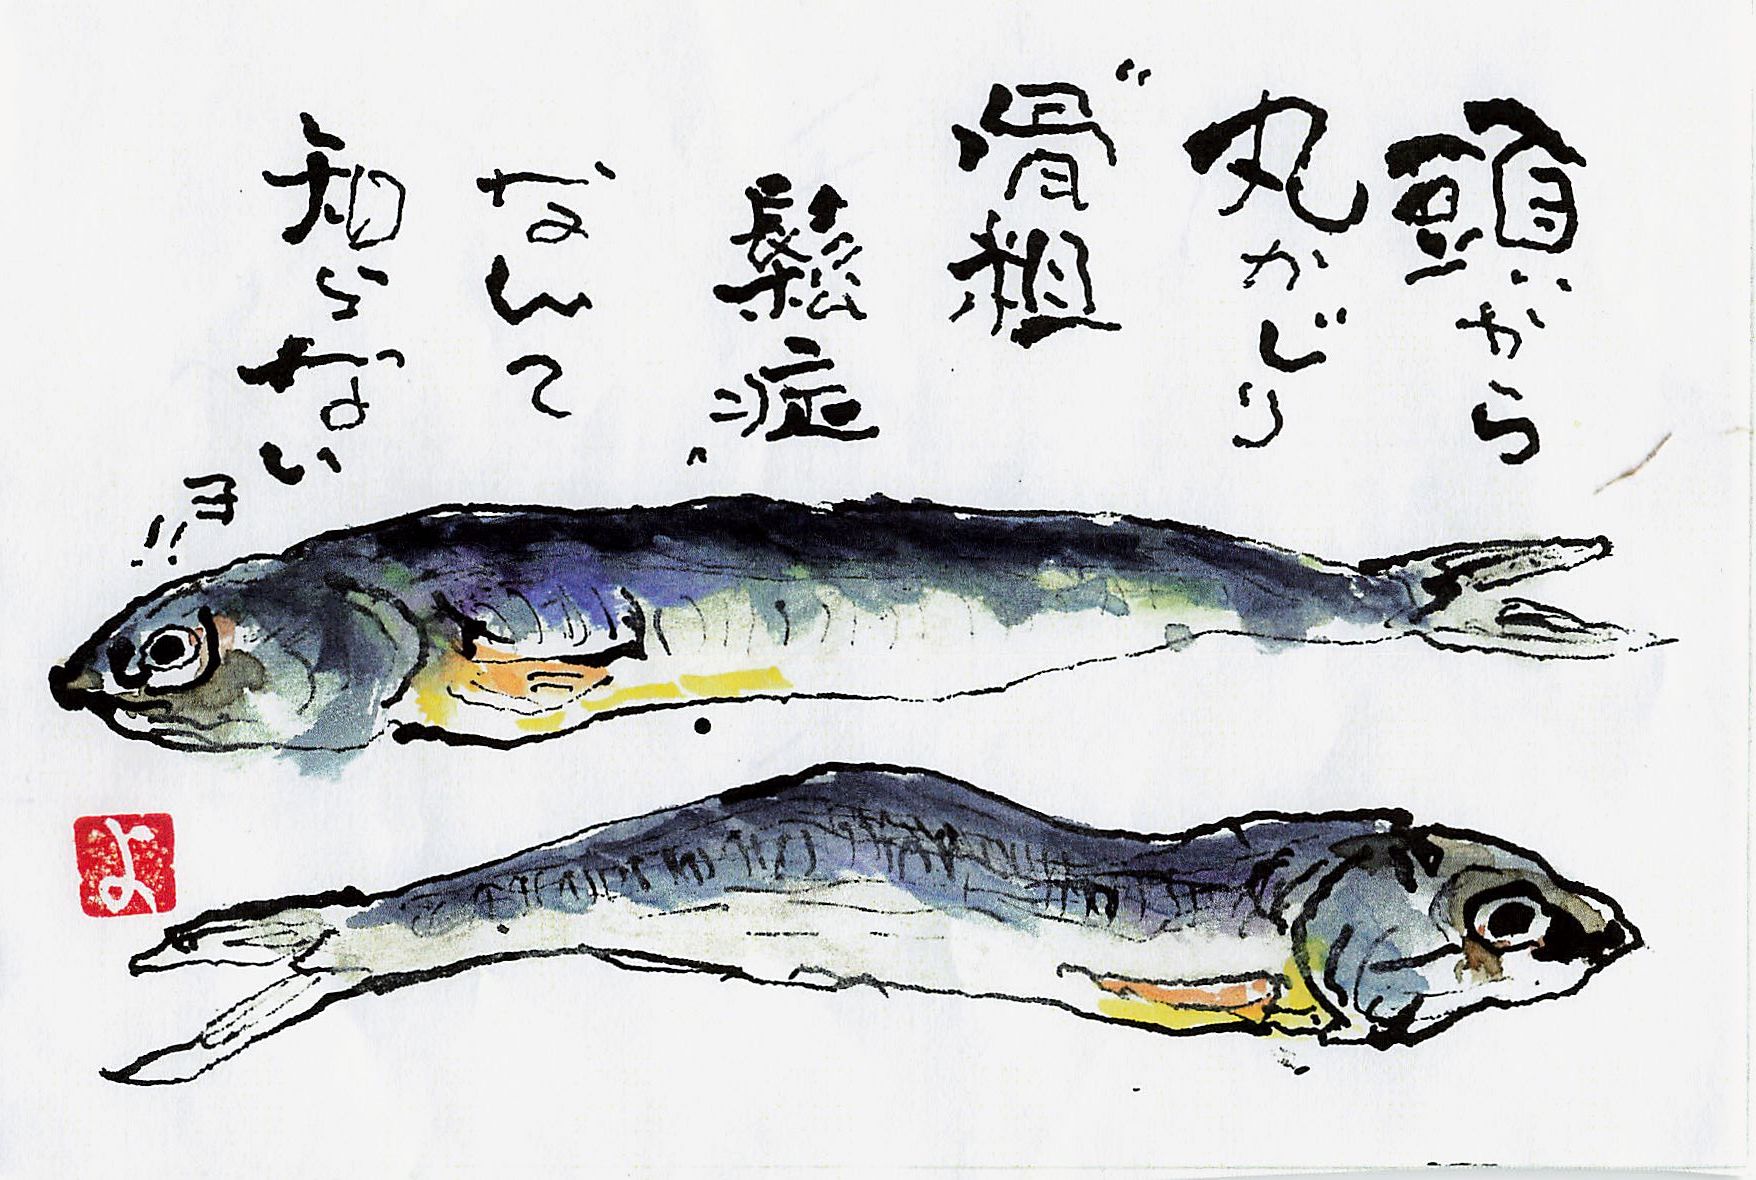 頭から
丸かじり
〝骨粗
鬆症〟
なんて
知らない
ヨ!!
よ